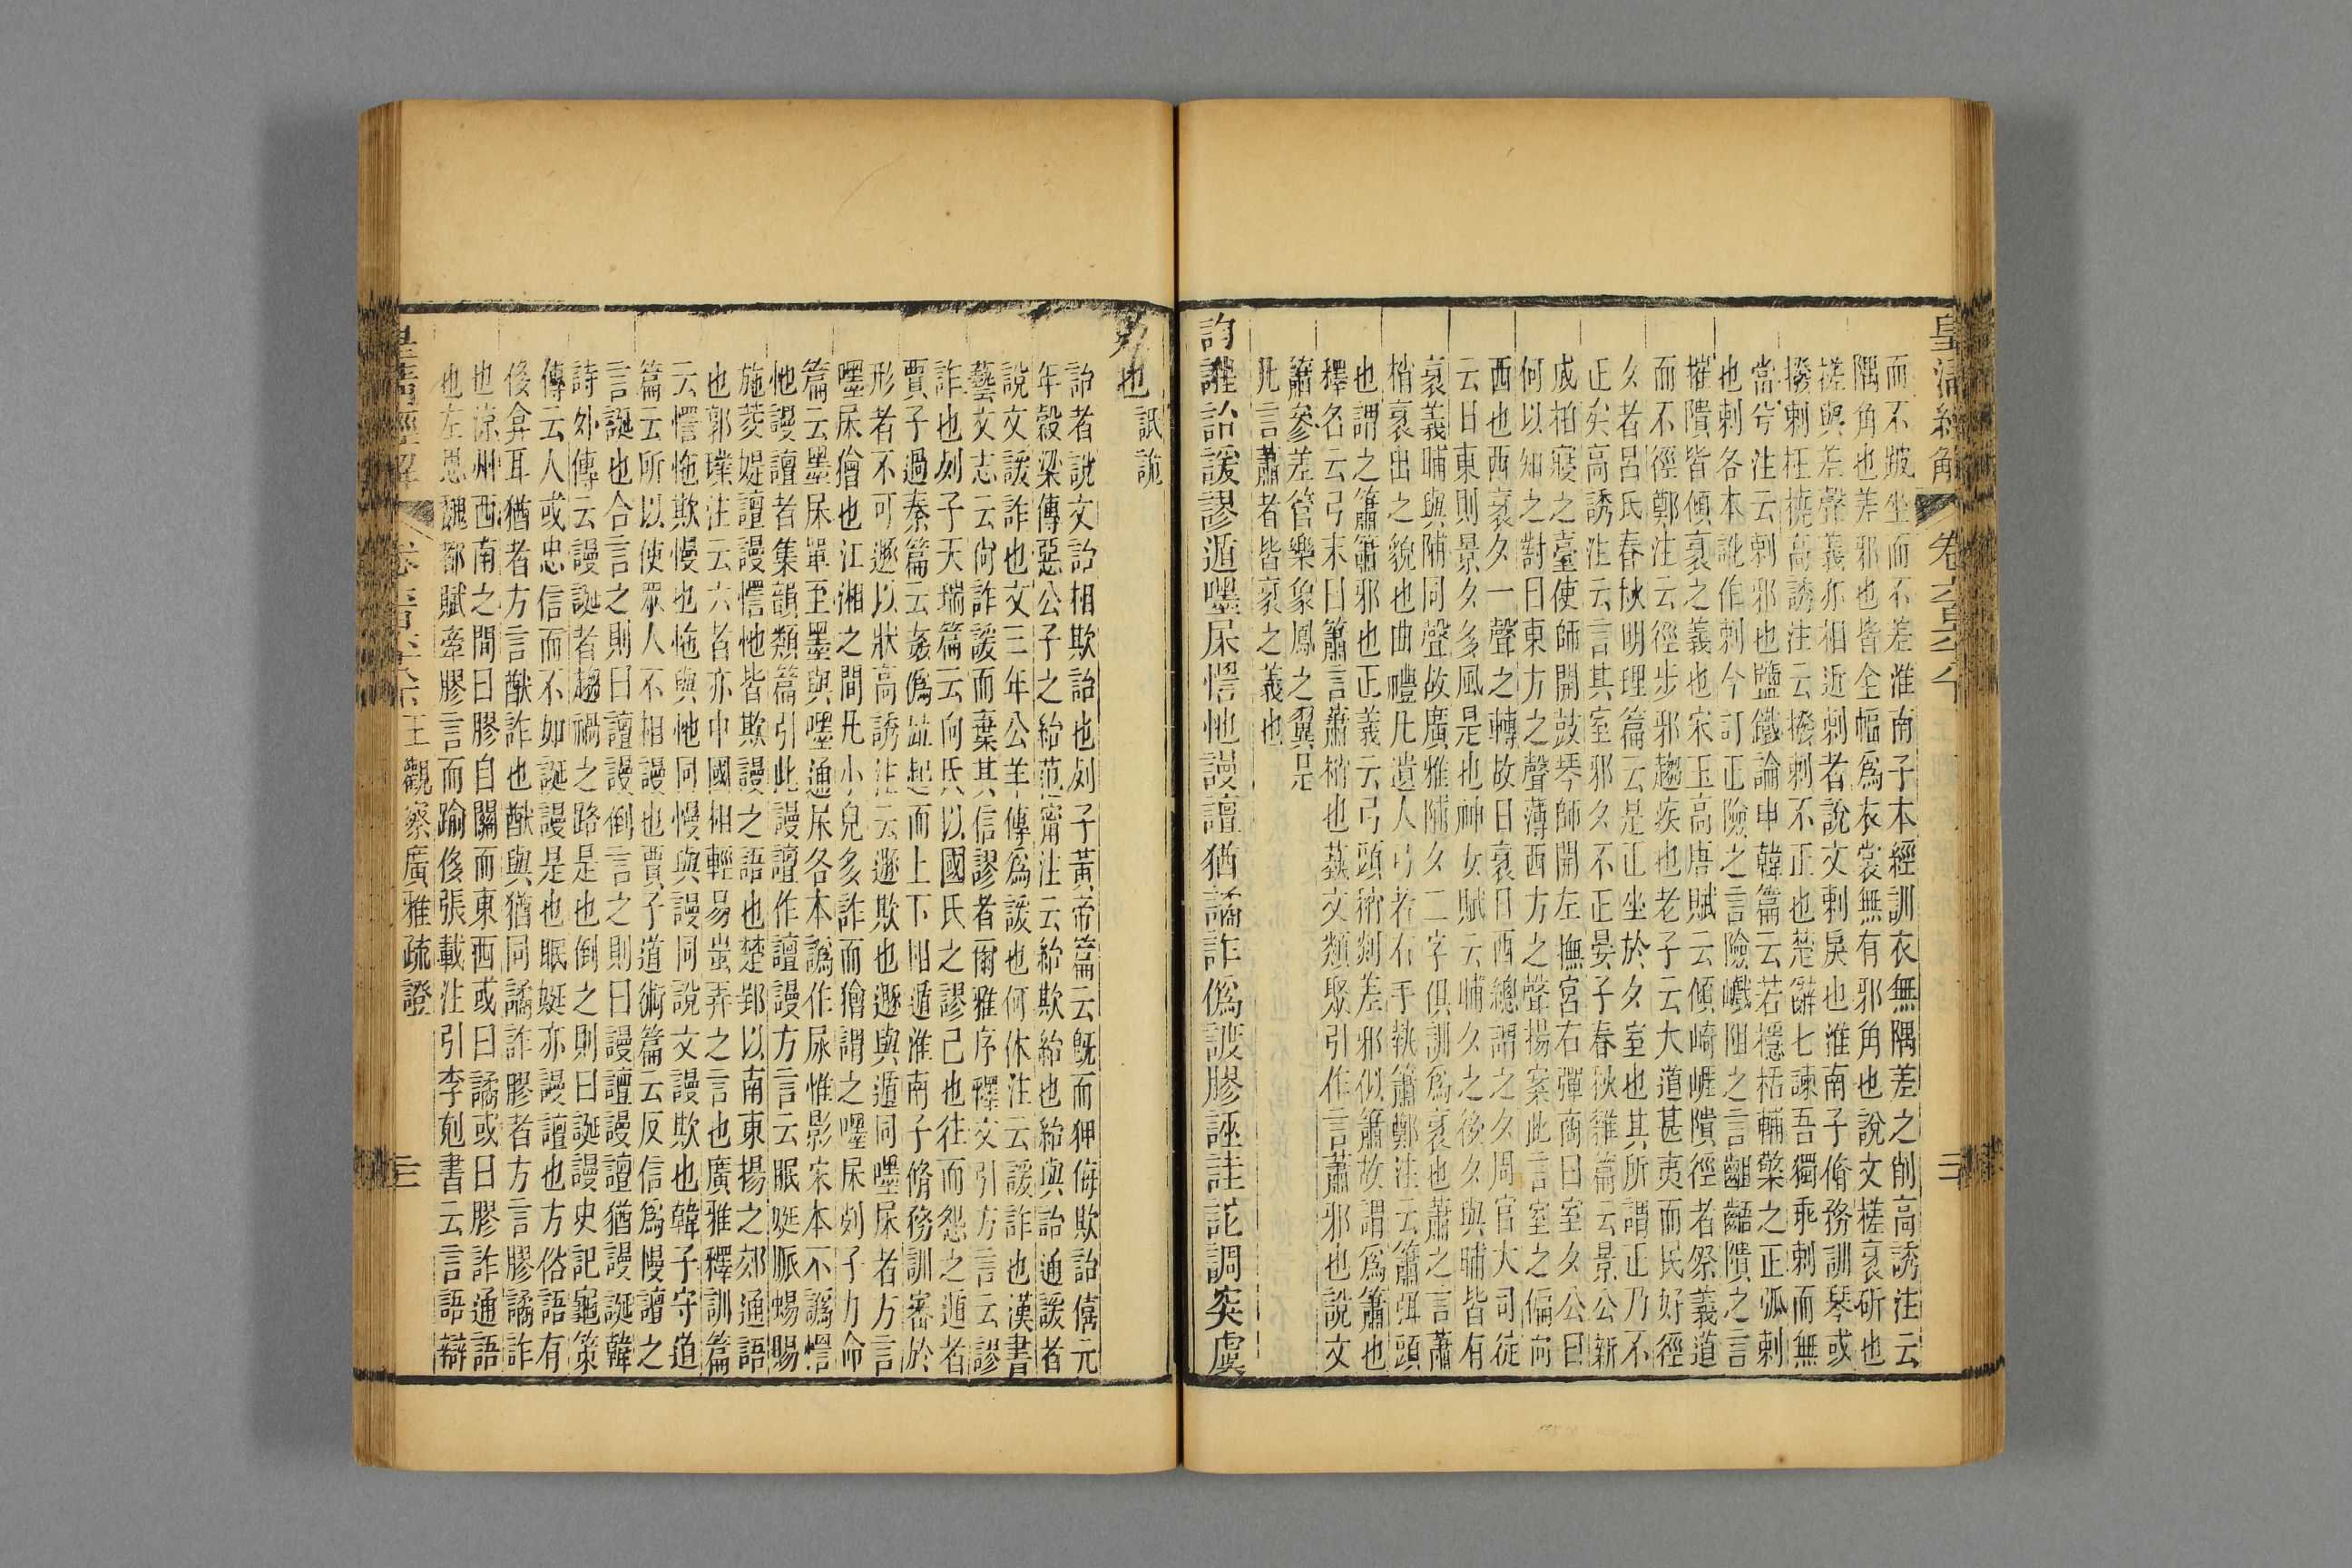 而不跛坐而不差淮南子本經訓衣無隅差之削高誘注云
隅角也差邪也皆全幅爲衣裳無有邪角也說文槎衺斫也
槎與差聲義亦相近剌者說文剌戾也淮南子脩務訓琴或
撥剌枉橈高誘注云撥剌不正也楚辭七諫吾獨乖剌而無
當兮注云剌邪也鹽鐵論申韓篇云若檼栝輔檠之正弧剌
也剌各本訛作刺今訂正險之言險巇阻之言齟齬隤之言
摧隤皆傾衺之義也宋玉高唐賦云傾崎崕隤徑者祭義道
而不徑鄭注云徑步邪趨疾也老子云大道甚夷而民好徑
夂者呂氏春秋明理篇云是正坐於夕室也其所謂正乃不
正矣高誘注云言其室邪夕不正晏子春秋雜篇云景公新
成柏寢之臺使師開鼓琴師開左撫宮右彈商曰室夕公曰
何以知之對曰東方之聲薄西方之聲揚案此言室之偏向
西也西衺夕一聲之轉故日衺日西總謂之夕周官大司徒
云日東則景夕多風是也神女賦云晡夕之後夕與晡皆有
衺義晡與陠同聲故廣雅陠夕二字俱訓爲衺也蕭之言蕭
梢衺出之貌也曲禮凡遺人弓者右手執簫鄭注云簫弭頭
也謂之簫簫邪也正義云弓頭稍剡差邪似簫故謂爲簫也
釋名云弓末曰簫言蕭梢也藝文類聚引作言蕭邪也說文
簫參差管樂象鳳之翼是
凡言蕭者皆衺之義也
訽䜏詒諼謬遁嚜㞘憕忚謾譠猶譎詐僞䛳膠誣詿詑調突虞
也詆詭
詒者說文詒相欺詒也列子黃帝篇云旣而狎侮欺詒僖元
年穀梁傳惡公子之紿范甯注云紿欺紿也紿與詒通諼者
說文諼詐也文三年公羊傳爲諼也何休注云諼詐也漢書
藝文志云尙詐諼而棄其信謬者爾雅序釋文引方言云謬
詐也列子天瑞篇云向氏以國氏之謬己也往而怨之遁者
賈子過秦篇云姦僞竝起而上下相遁淮南子脩務訓審於
形者不可遯以狀高誘注云遯欺也遯與遁同嚜㞘者方言
嚜㞘獪也江湘之間凡小兒多詐而獪謂之嚜㞘列子力命
篇云墨㞘單至墨與嚜通㞘各本譌作尿惟影宋本不譌憕
忚謾譠者集韻類篇引此謾譠作譠謾方言云眠娗脈蜴賜
施茭媞譠謾憕忚皆欺謾之語也楚郢以南東揚之郊通語
也郭璞注云六者亦中國相輕易蚩弄之言也廣雅釋訓篇
云憕忚欺慢也忚與他同慢與謾同說文謾欺也韓子守道
篇云所以使眾人不相謾也賈子道術篇云反信爲慢譠之
言誕也合言之則曰譠謾倒言之則曰謾譠譠謾猶謾誕韓
詩外傳云謾誕者趨禍之路是也倒之則曰誕謾史記龜策
傳云人或忠信而不如誕謾是也眠娗亦謾譠也方俗語有
侈弇耳猶者方言猷詐也猷與猶同譎詐膠者方言膠譎詐
也涼州西南之間曰膠自關而東西或曰譎或曰膠詐通語
也左思魏都賦牽膠言而踰侈張載注引李剋書云言語辯
王觀察廣雅疏證
三